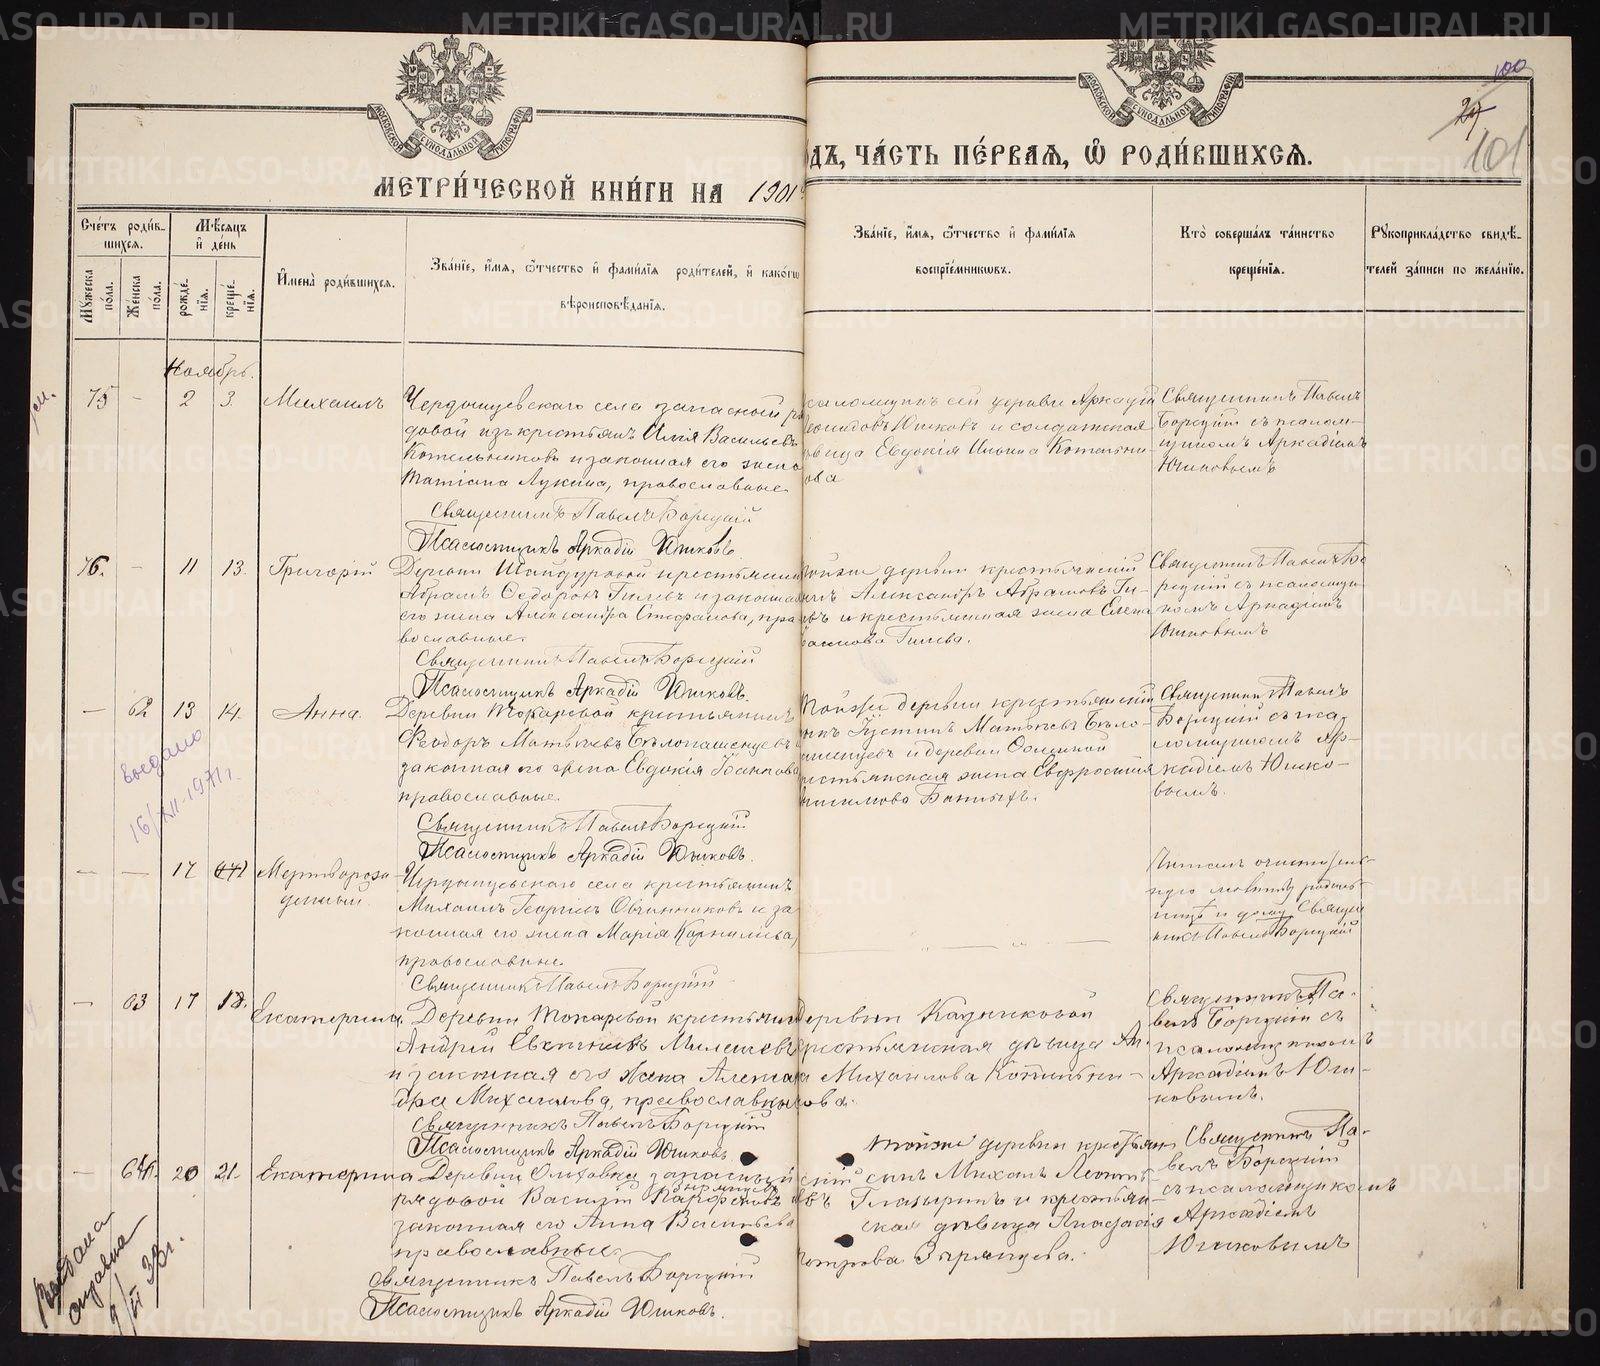 METRIKI.GASO-URAL.RU
МОСКОВСКОЙ СѴНОДАЛЬНОЙ ТИПОГРАФІИ
МОСКОВСКОЙ СѴНОДАЛЬНОЙ ТИПОГРАФІИ
100
29
101
МЕТРИ́ЧЕСКОЙ КНИ́ГИ НА 1901
ОДЪ, ЧА́СТЬ ПЕ́РВАѦ, Ѽ РОДИ́ВШИХСѦ.
Сче́тъ роди́в-
шихсѧ.
Мꙋ́жеска по́ла.
Же́нска по́ла.
Мѣ́сѧцъ и҆ де́нь
рожде́нїѧ.
креще́нїѧ.
И҆мена̀ роди́вшихсѧ.
Зва́нїе, и҆́мѧ, ѻ҆́тчество и҆ фами́лїѧ роди́телей, и҆ како́гѡ
вѣроисповѣ́данїѧ.
Зва́нїе, и҆́мѧ, ѻ҆́тчество и҆ фами́лїѧ
воспрїе́мникѡвъ.
Кто̀ соверша́лъ та́инство
креще́нїѧ.
Рꙋкоприкла́дство свидѣ́-
телей за́писи по жела́нїю.
Ноябрь.
75 - 2 3. Михаилъ
Чердынцевскаго села запасный ря
довой изъ крестьянъ Илія Васильевъ
Котельниковъ и законная его жена
Татіана Лукина, православные.
Священникъ Павелъ Борецкій
Псаломщикъ Аркадій Юшковъ.
саломщикъ сей церкви Аркадій
Леонидовъ Юшковъ и солдатская
вица Евдокія Ильина Котельни-
ова
Священникъ Павелъ
Борецкій съ псалом-
щикомъ Аркадіемъ
Юшковымъ
76. - 11 13. Григорій
Деревни Шайдуровой крестьянин
Абрамъ Ѳедоровъ Гилевъ и законная
его жена Александра Стефанова, пра
вославные.
Священникъ Павелъ Борецкій
Псаломщикъ Аркадій Юшковъ.
Тойже деревни крестьянскій
инъ Александръ Абрамовъ Ги-
евъ и крестьянская жена Елена
Гилева.
Священникъ Павелъ Бо
рецкій съ псаломщи
комъ Аркадіемъ
Юшковымъ
- 62 13 14. Анна.
Деревни Токаревой крестьянинъ
Ѳеодоръ Матвѣевъ Бѣлопашенцевъ и
законная его жена Евдокія Іоаннова
православные.
Священникъ Павелъ Борецкій
Псаломщикъ Аркадій Юшковъ.
Тойже деревни крестьянскій
ынъ Іустинъ Матвѣевъ Бѣло-
пашенцевъ и деревни
естьянская жена Евфросинія
Священникъ Павелъ
Борецкій съ пса
ломщикомъ Ар-
кадіемъ Юшко-
вымъ.
16/XII.1971 г.
- - 17 Мертворож-
денный.
Чердынцевскаго села крестьянинъ
Михаилъ Георгіевъ Овчинниковъ и за
конная его жена Марія Корнилиева,
православные.
Священникъ Павелъ Борецкій
Читалъ очиститель-
ную молитву родиль-
ницѣ и дому Священ
никъ Павелъ Борецкій
- 63 17 18. Екатерина.
Деревни Токаревой крестьянин
Андрей Милешевъ
и законная его жена Алексан
дра Михаилова, православные
Священникъ Павелъ Борецкій
Псаломщикъ Аркадій Юшковъ
Деревни Казачковой
крестьянская дѣвица Ан-
а Михаилова Котельни-
кова.
Священникъ Па-
велъ Борецкій съ
псаломщикомъ
Аркадіемъ Юш-
ковымъ.
- 64. 20 21. Екатерина
Деревни Ольховки запасный
рядовой Василій
законная его Анна Васильева
православные.
Священникъ Павелъ Борецкій
Псаломщикъ Аркадій Юшковъ.
тойже деревни крестьян
скій сынъ Михаилъ Леонтьь
евъ Глазыринъ и крестьян
ская дѣвица Анастасія
Петрова Зырянцева.
Священникъ Па-
велъ Борецкій
съ псаломщикомъ
Аркадіемъ
Юшковымъ
Выдана
справка